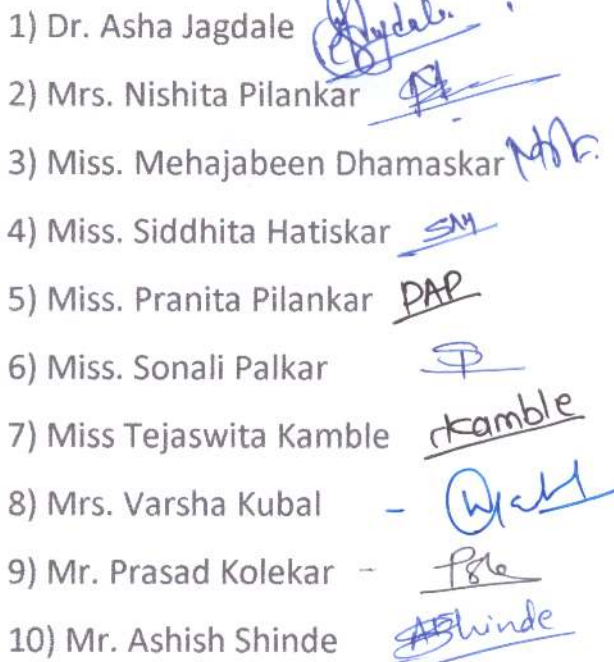 1) Dr. Asha Jagdale
2) Mrs. Nishita Pilankar
3) Miss. Mehajabeen Dhamaskar
4) Miss. Siddhita Hatiskar
5) Miss. Pranita Pilankar PAP
6) Miss. Sonali Palkar
7) Miss Tejaswita Kamble Kamble
8) Mrs. Varsha Kubal -
9) Mr. Prasad Kolekar -
10) Mr. Ashish Shinde AShinde